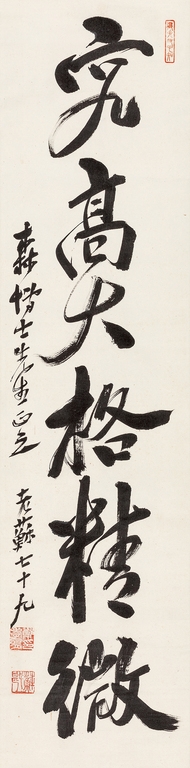 究高大格精微
森博士先生正之
老蘇七十九